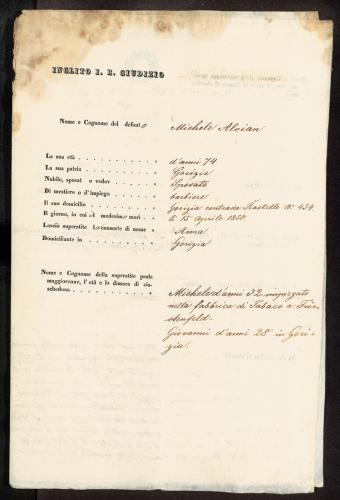 INCLITO I. R. GIUDIZIO
Nome e Cognome del defonto Michele Aloian
La sua età d'anni 74
La sua patria Gorizia
Nubile, sposat o vedov Sposato
Di mestiere o d'impiego barbiere
Il suo domicilio Gorizia contrada Kastello No. 454.
Il giorno, in cui il medesimo morì li 15 Aprile 1850.
Lasciò superstite la consorte di nome Anna
Domiciliante in Gorizia
Nome e Cognome della superstite prole
maggiorenne, l'età e la dimora di cia-
scheduna
Michele d'anni 32 impiegato
nella fabbrica di Tabaco a Für-
stenfeld.
Giovanni d'anni 28 in Gori-
zia.